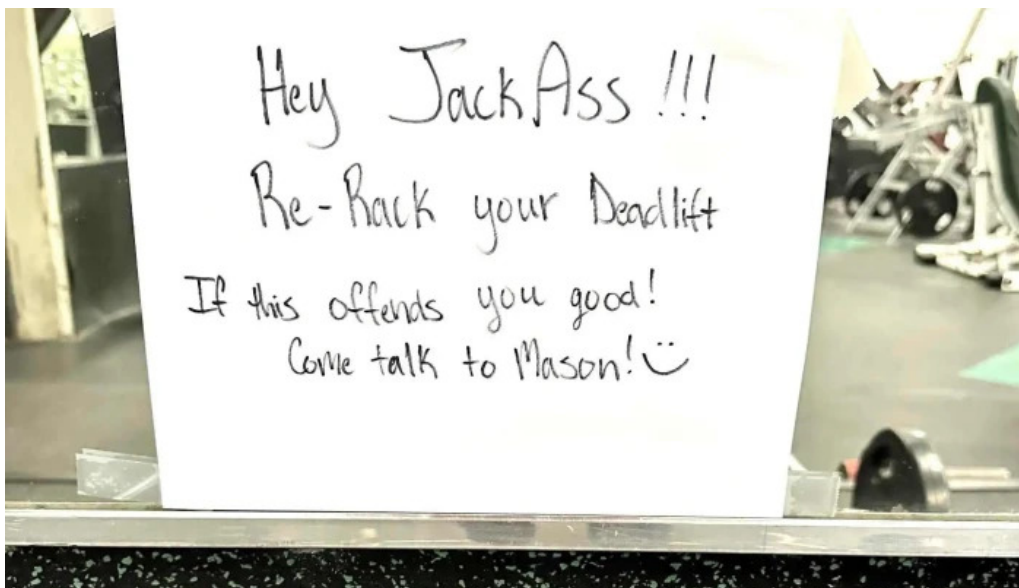 Hey JackAss !!!
Re-Rack your Deadlift
If this offends you good!
Come talk to Mason! :)